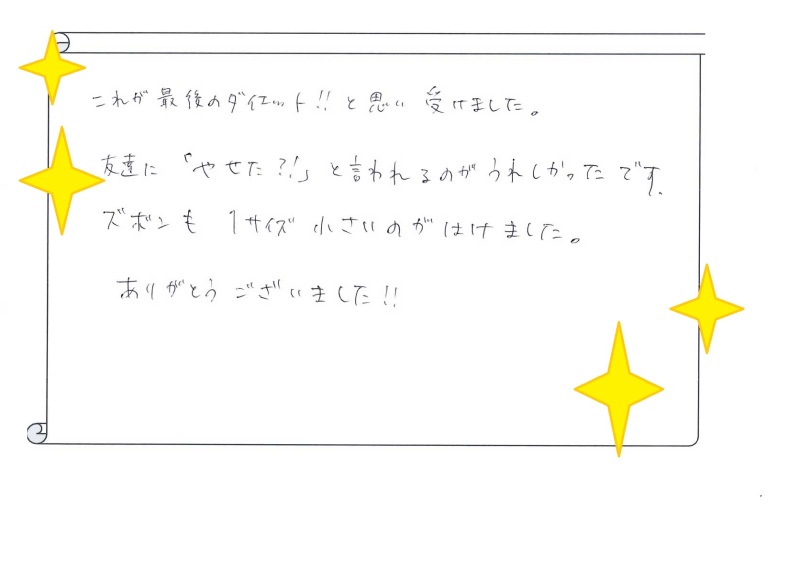 これが最後のダイエット!!と思い受けました。
友達に「やせた?!」と言われるのがうれしかったです。
ズボンも1サイズ小さいのがはけました。
ありがとうございました!!